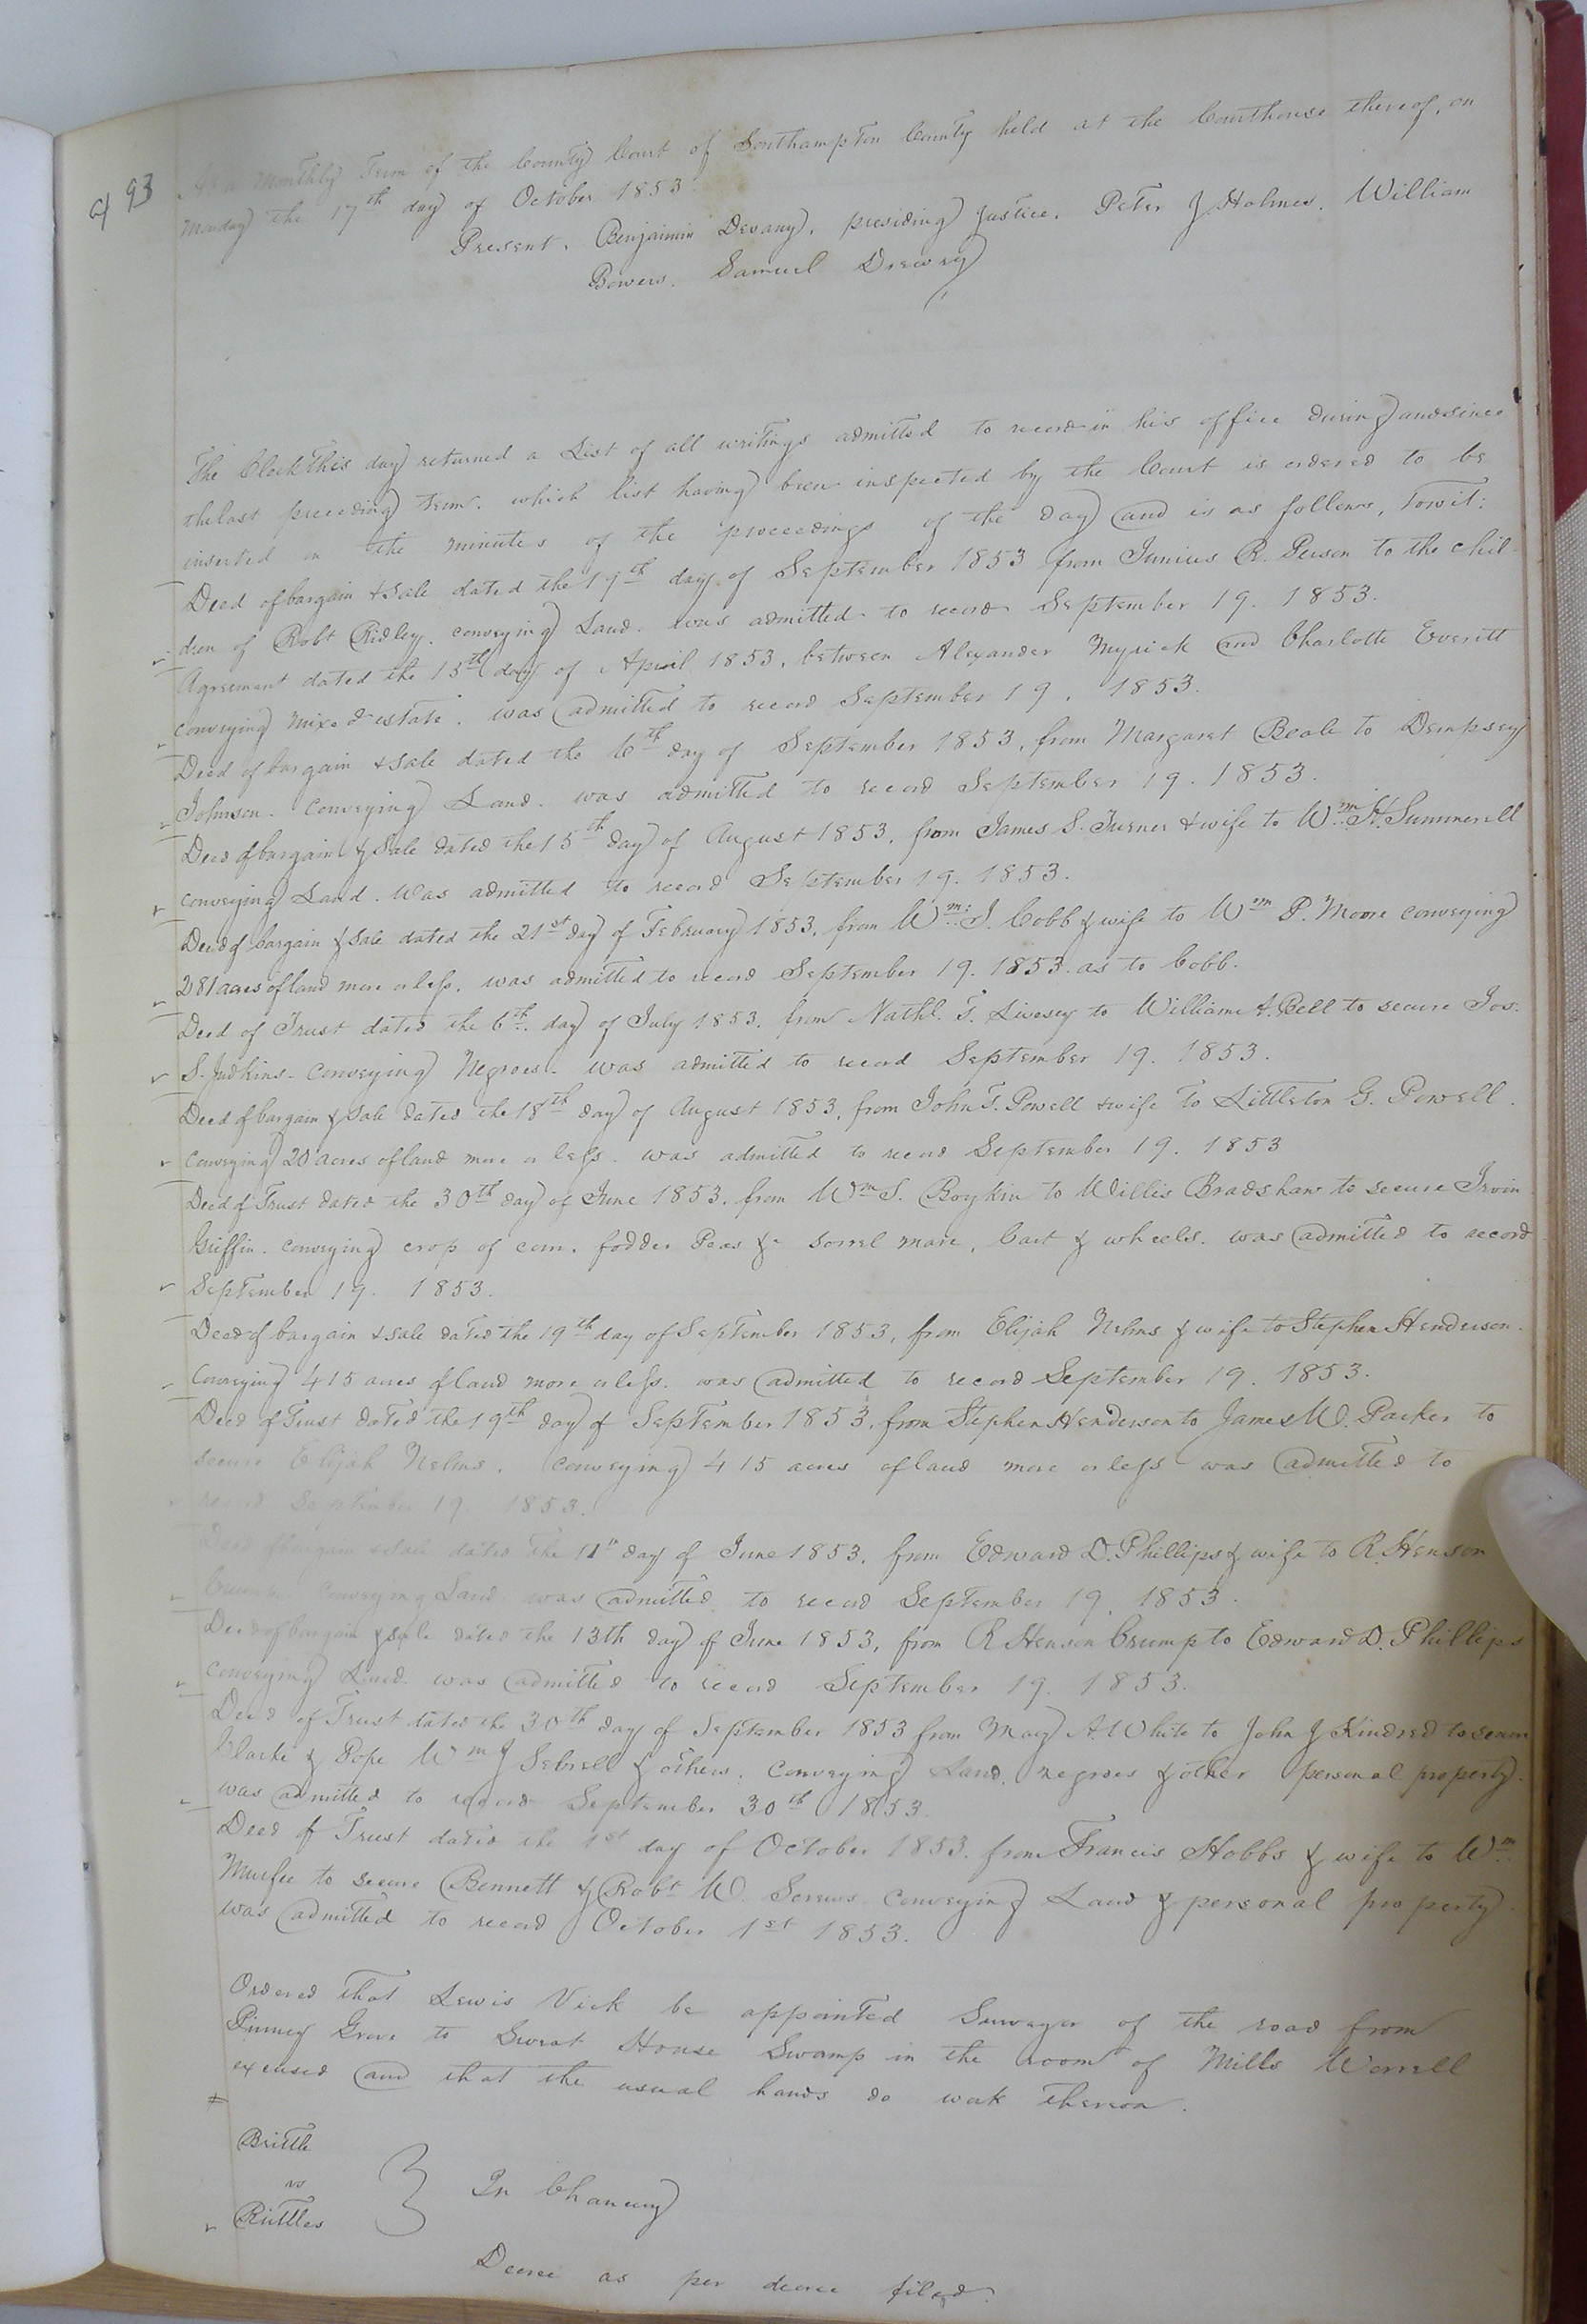 93
At a Monthly Term of the County Court of Southampton County held at the Courthouse thereof, on
Monday the 17th day of October 1853.
Present. Benjamin Devany, presiding Justice. Peter J Holmes. William
Bowers. Samuel Drewry
The Clerk this day returned a List of all writings admitted to record in his office during and since
the last preceeding term. which list having been inspected by the Court is ordered to be
inserted in the minutes of the proceedings of the day and is as follows, Towit:
Deed of bargain & sale dated the 19th day of September 1853 from Junius R. Person to the chil-
dren of Robt Ridley. conveying Land. was admitted to record September 19. 1853.
Agreement dated the 15th day of April 1853. between Alexander Myrick and Charlotte Everitt
conveying mixed estate. was admitted to record September 19. 1853.
Deed of bargain & sale dated the 6th day of September 1853, from Margaret Beale to Dempsey
Johnson. Conveying Land. was admitted to record September 19. 1853.
Deed of bargain & Sale dated the 15th day of August 1853, from James S. Turner & wife to Wm. H. Summerell
conveying Land. Was admitted to record September 19. 1853.
Deed of bargain & sale dated the 21st day of February 1853. from Wm: J. Cobb & wife to Wm P. Moore conveying
281 acres of land more or less. was admitted to record September 19. 1853. as to Cobb.
Deed of Trust dated the 6th. day of July 1853. from Nathl. T. Livesey to William A. Bell to secure Jos.
S. Judkins - Conveying Negroes. was admitted to record September 19. 1853.
Deed of bargain & sale dated the 18th day of August 1853, from John T. Powell & wife To Littleton G. Powell.
Conveying 20 acres of land more or less. was admitted to record September 19. 1853
Deed of Trust dated the 30th day of June 1853. from Wm S. Boykin to Willis Bradshaw to secure Irvin
Griffin. conveying crop of corn, fodder Peas &c sorrel mare, Cart & wheels. was admitted to record
September 19. 1853.
Deed of bargain & sale dated the 19th day of September 1853, from Elijah Nelms & wife to Stephen Henderson.
Conveying 415 acres of land more or less. was admitted to record September 19. 1853.
Deed of Trust dated the 19th day of September 1853. from Stephen Henderson to James W. Parker to
secure Elijah Nelms. Conveying 415 acres of land more or less was admitted to
record September 19. 1853.
Deed of bargain & sale dated the 11th day of June 1853. from Edward D. Phillips & wife to R. Henson
Crump. Conveying Land was admitted to record September 19. 1853.
Deed of bargain & sale dated the 13th day of June 1853, from R Henson Crump to Edward D. Phillips
conveying Land. was admitted to record September 19. 1853.
Deed of Trust dated the 30th day of September 1853 from Mary A. White to John J Kindred to secure
Clarke & Pope Wm J Sebrell & others. Conveying Land. negroes & other personal property.
was admitted to record September 30th 1853
Deed of Trust dated the 1st day of October 1853. from Francis Hobbs & wife to Wm
Murfee to secure Bennett & Robt W. Screws - conveying Land & personal property.
was admitted to record October 1st 1853.
Ordered that Lewis Vick be appointed Surveyor of the road from
Pinney Grove to Sweat House Swamp in the room of Mills Worrell
excused and that the usual hands do work thereon.
Brittle
vs
Rittles
} In Chancery
Decree as per decree filed.